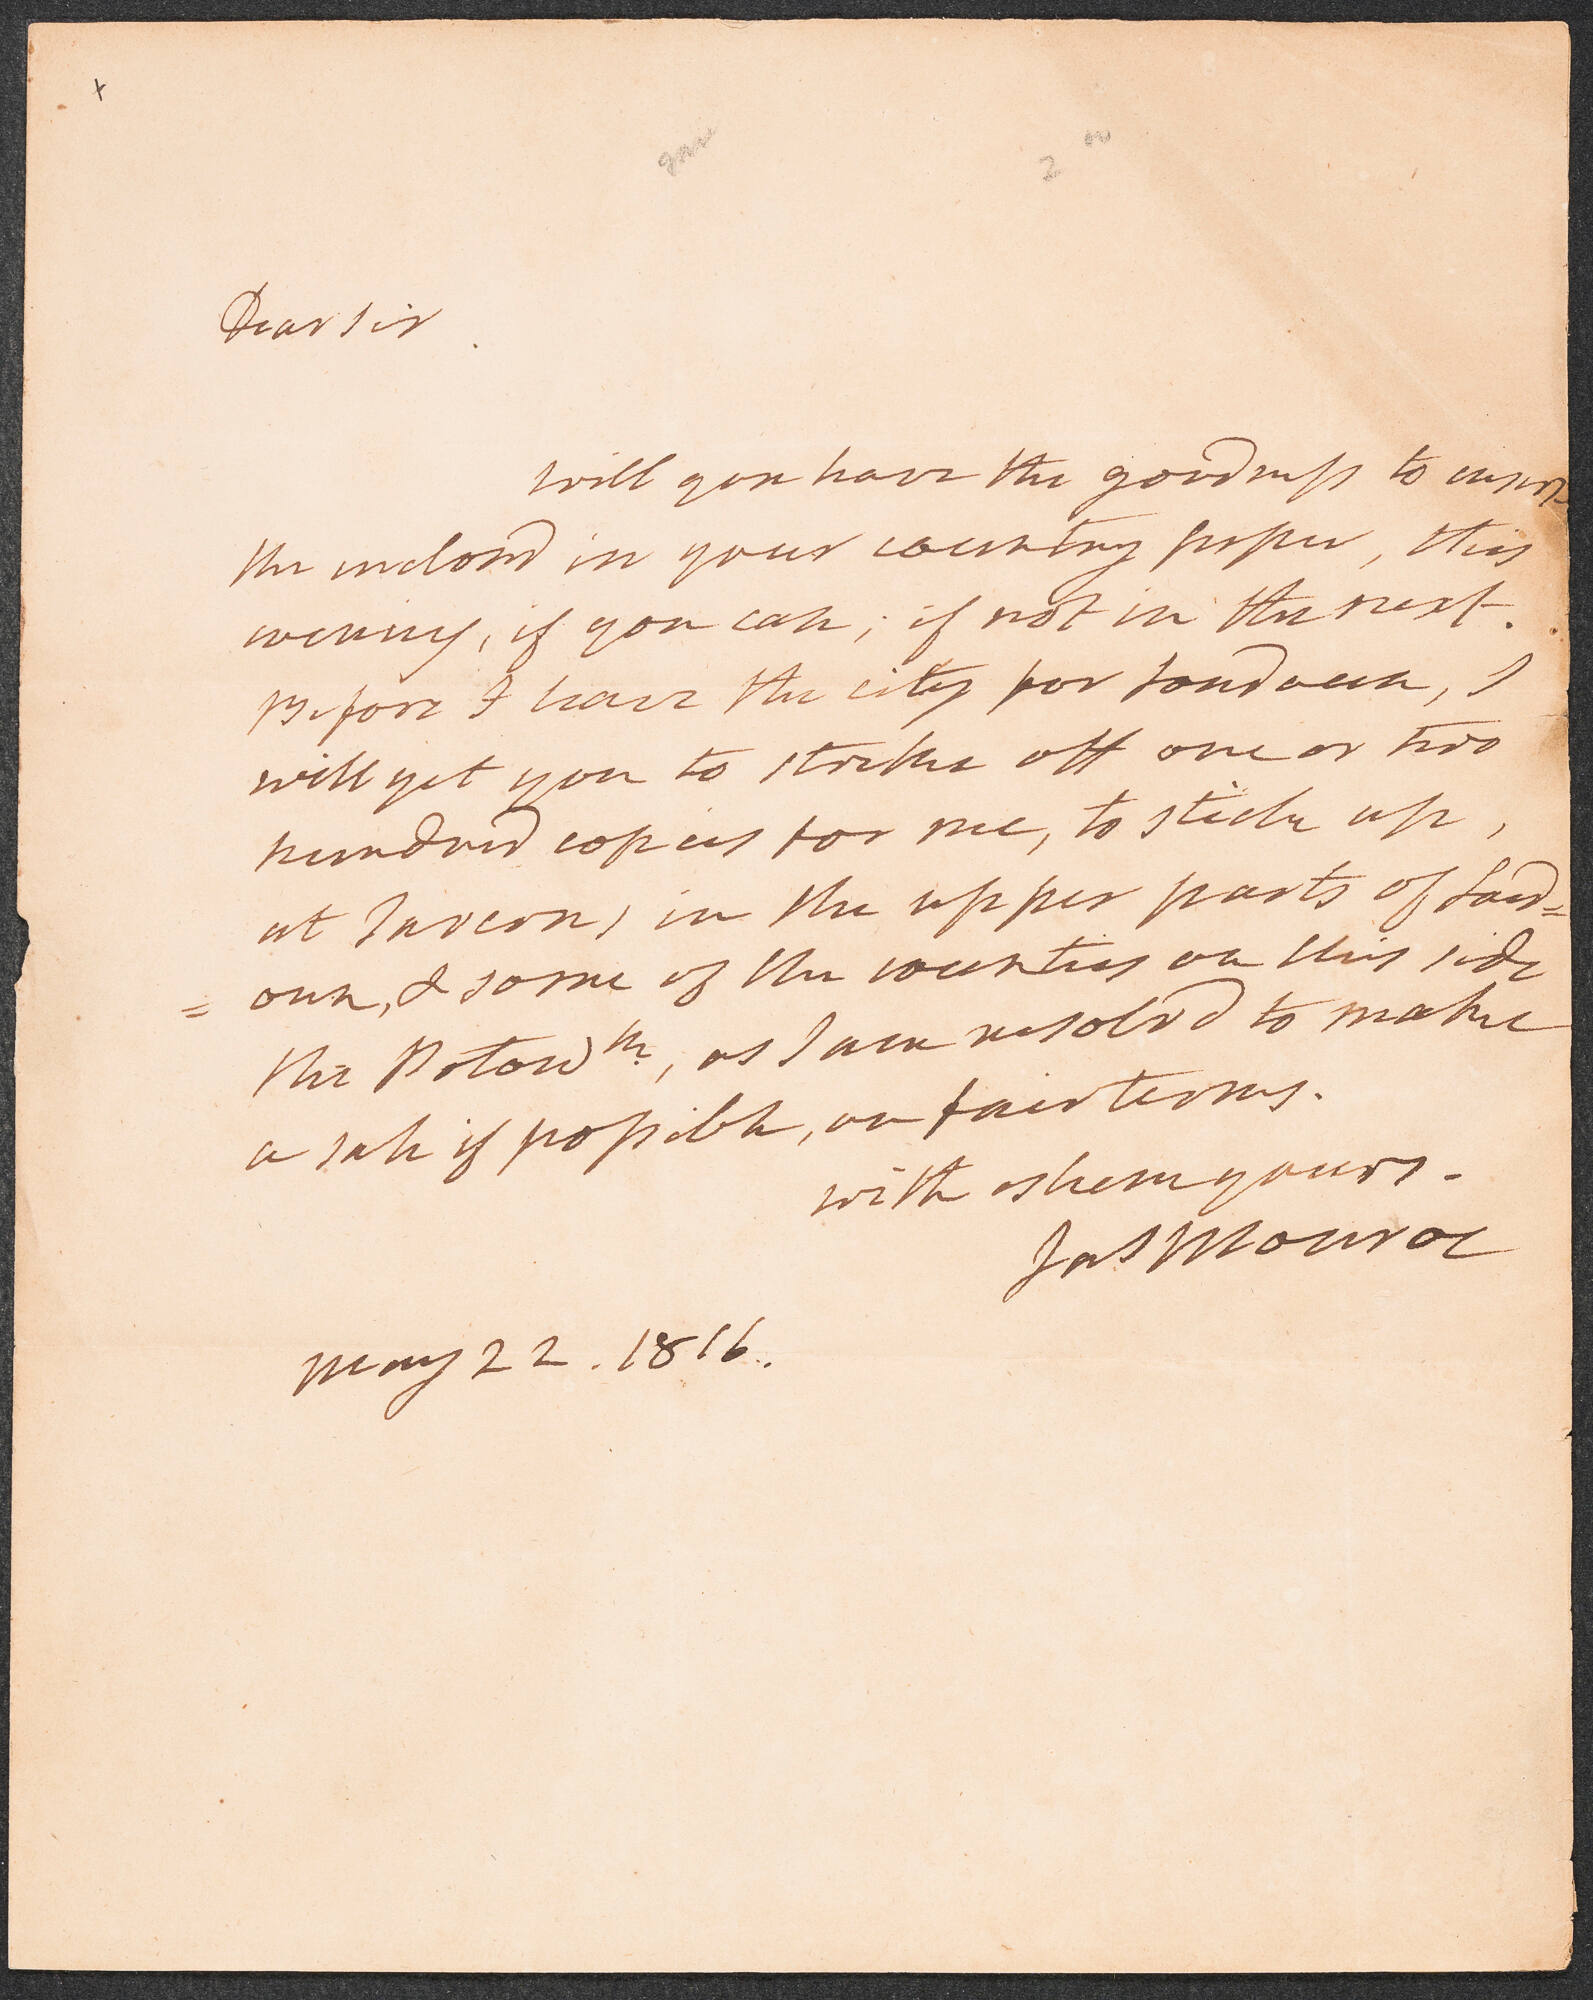 Dear Sir
Will you have the goodness to insert
the inclosd in your country paper, this
evening, if you can; if not in the next.
Before I leave the city for Loudoun, I
will get you to strike off one or two
hundred copies for me, to stick up,
at Taverns in the upper parts of Loud=
=oun, & some of the counties on this side
the Potowk, as I am resolvd to make
a sale if possible, on fair terms.
with esteem yours.
Jas Monroe
May 22. 1816.